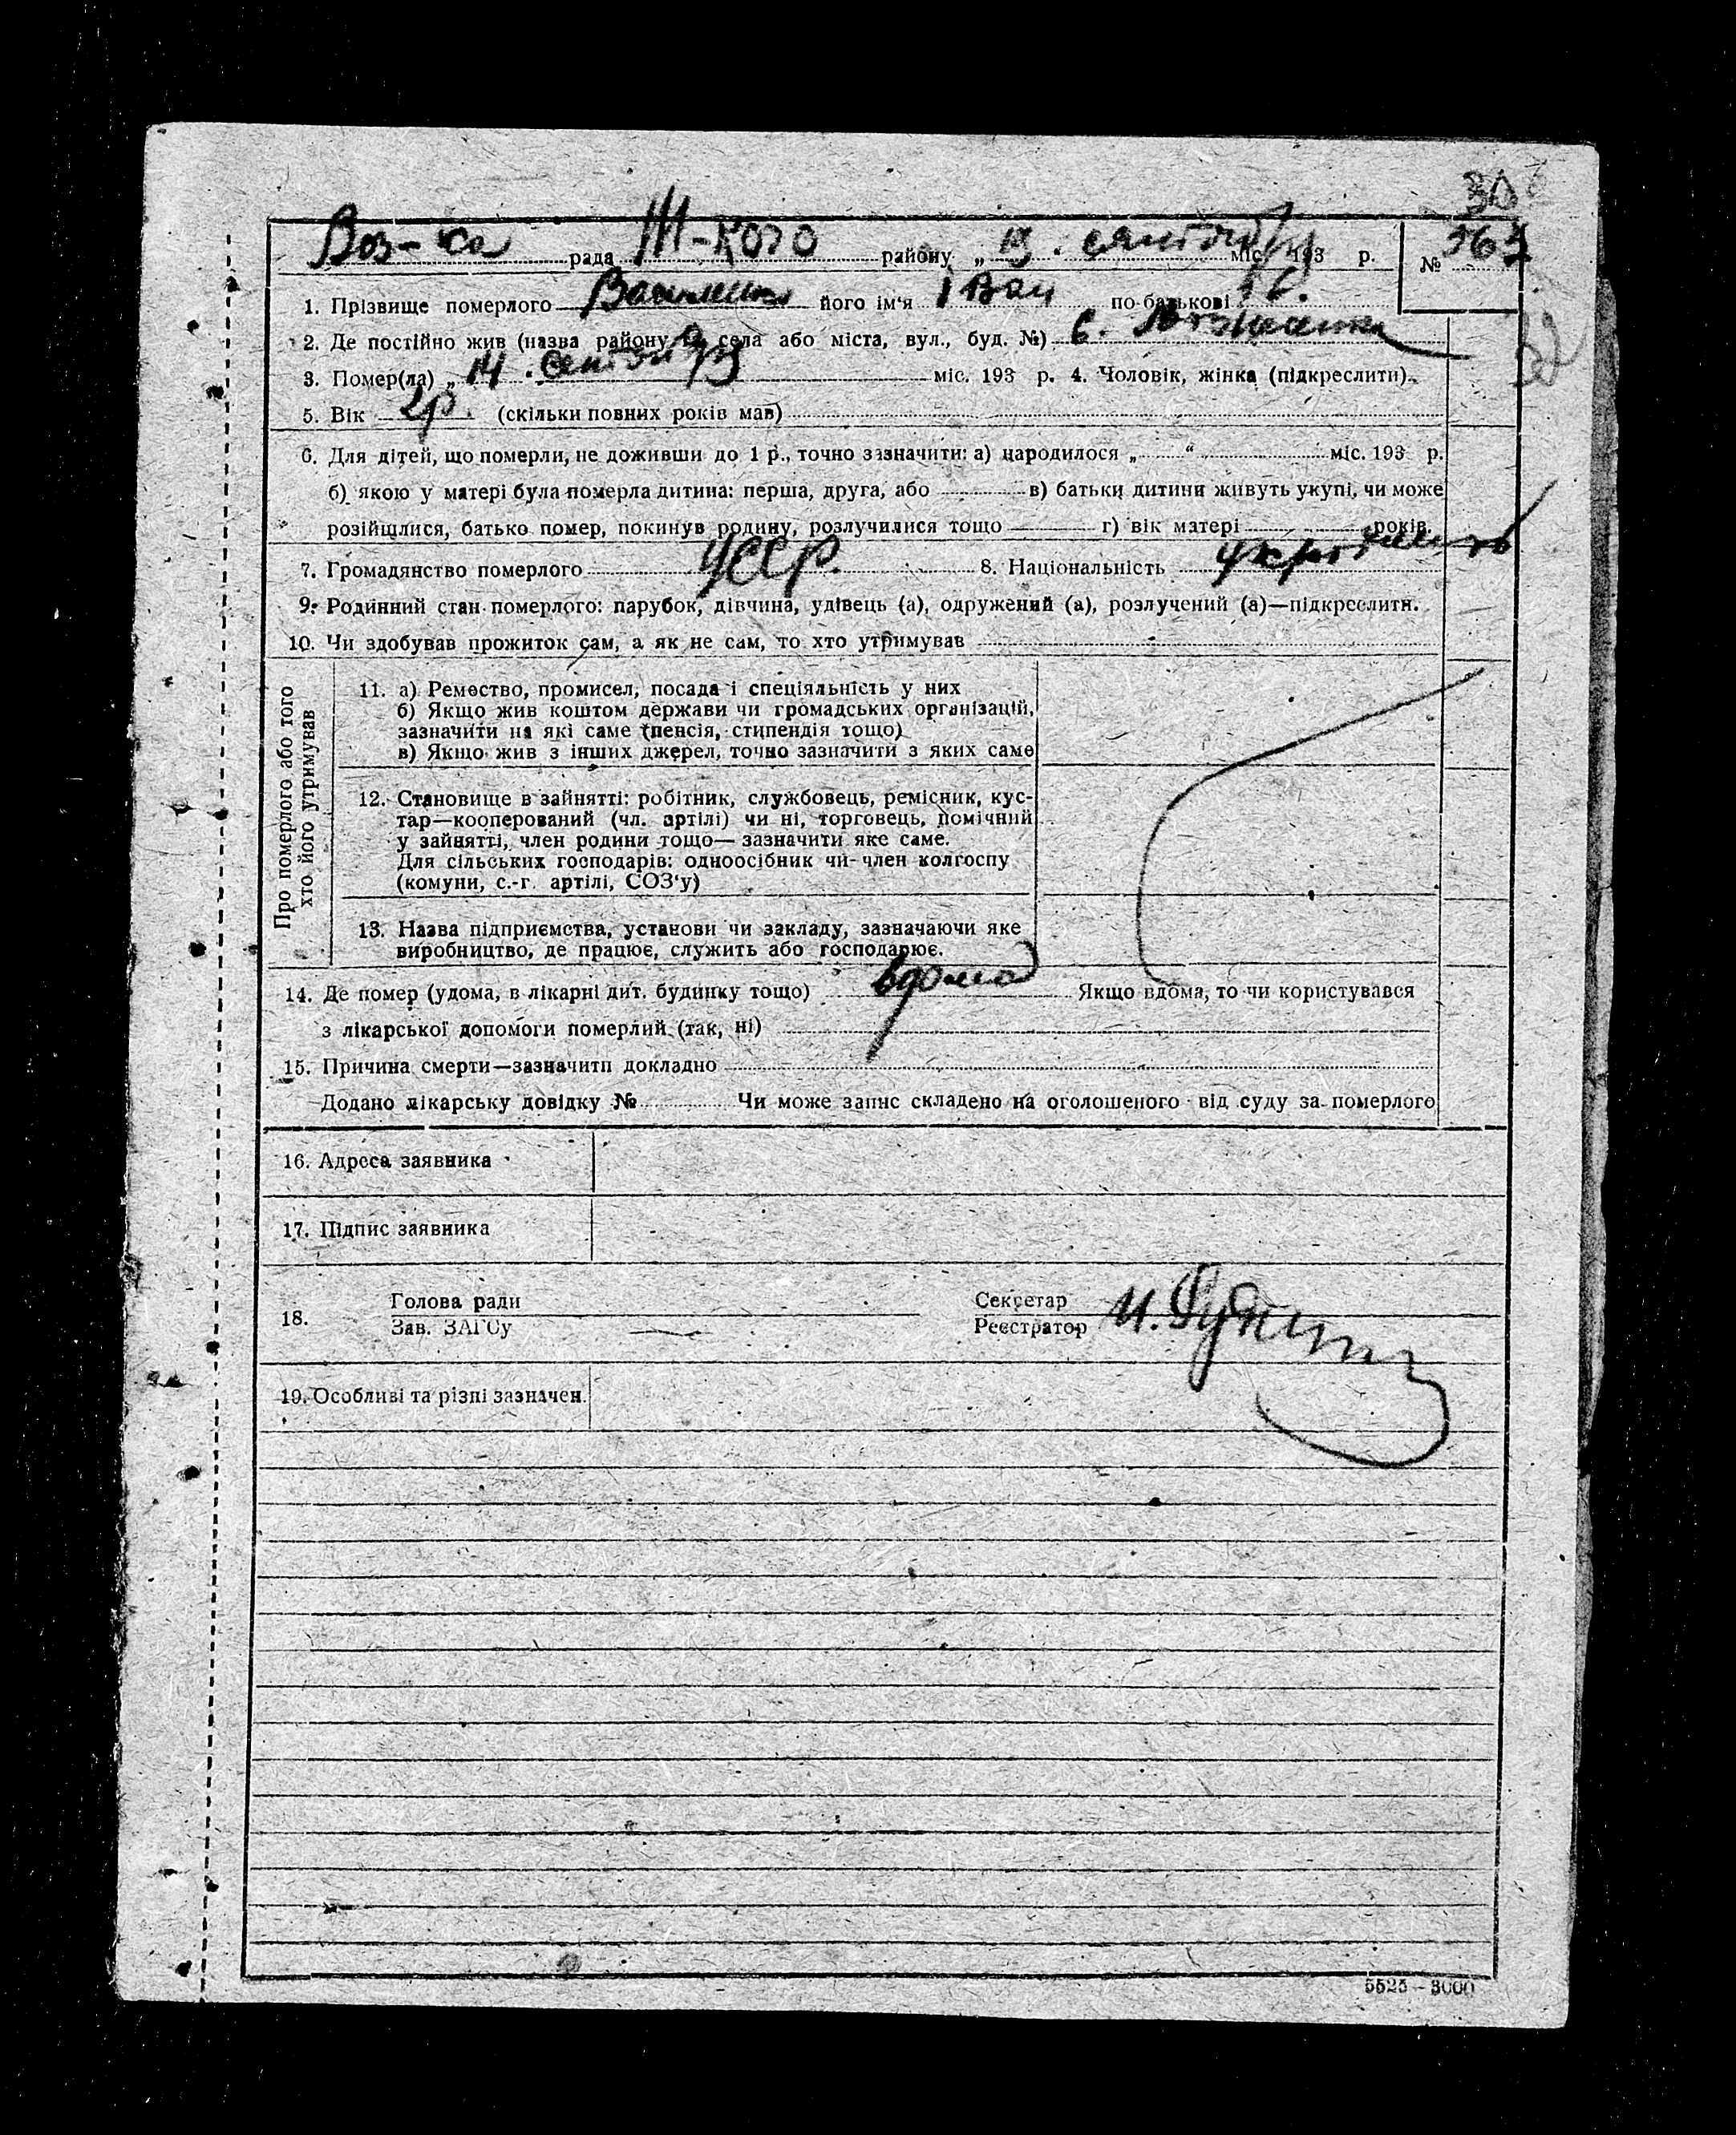 Воз-ка рада Ш-кого району „ 19 . сянтяб міс. 193 р. №
1. Прізвище померлого Василенко його ім'я Іван по-батькові
2. Де постійно жив (назва району та села або міста, вул., буд. №) с.
3. Помер(ла) „ 14 . сентяб міс. 193 р. 4. Чоловік, жінка (підкреслити).
5. Вік 2р. (скільки повних років мав)
6. Для дітей, що померли, не доживши до 1 р., точно зазначити: а) народилося „ “ міс. 193 р.
б) якою у матері була померла дитина: перша, друга, або в) батьки дитини живуть укупі, чи може
розійшлися, батько помер, покинув родину, розлучилися тощо г) вік матері років.
7. Громадянство померлого УССР. 8. Національність
9. Родинний стан померлого: парубок, дівчина, удівець (а), одружений (а), розлучений (а)—підкреслити.
10. Чи здобував прожиток сам, а як не сам, то хто утримував
Про померлого або того
хто його утримував
11. а) Ремество, промисел, посада і спеціяльність у них
б) Якщо жив коштом держави чи громадських організацій,
зазначити на які саме (пенсія, стипендія тощо)
в) Якщо жив з інших джерел, точно зазначити з яких саме
12. Становище в зайнятті: робітник, службовець, ремісник, кус-
тар—кооперований (чл. артілі) чи ні, торговець, помічний
у зайнятті, член родини тощо— зазначити яке саме.
Для сільських господарів: одноосібник чи член колгоспу
(комуни, с.-г. артілі, СОЗ'у)
13. Назва підприємства, установи чи закладу, зазначаючи яке
виробництво, де працює, служить або господарює.
14. Де помер (удома, в лікарні дит. будинку тощо) вдома Якщо вдома, то чи користувався
з лікарської допомоги померлий (так, ні)
15. Причина смерти—зазначити докладно
Додано лікарську довідку № Чи може запис складено на оголошеного від суду за померлого
16. Адреса заявника
17. Підпис заявника
18. Голова ради Секретар
Зав. ЗАГСу Реєстратор
19. Особливі та різні зазначен.
5525 — 3000